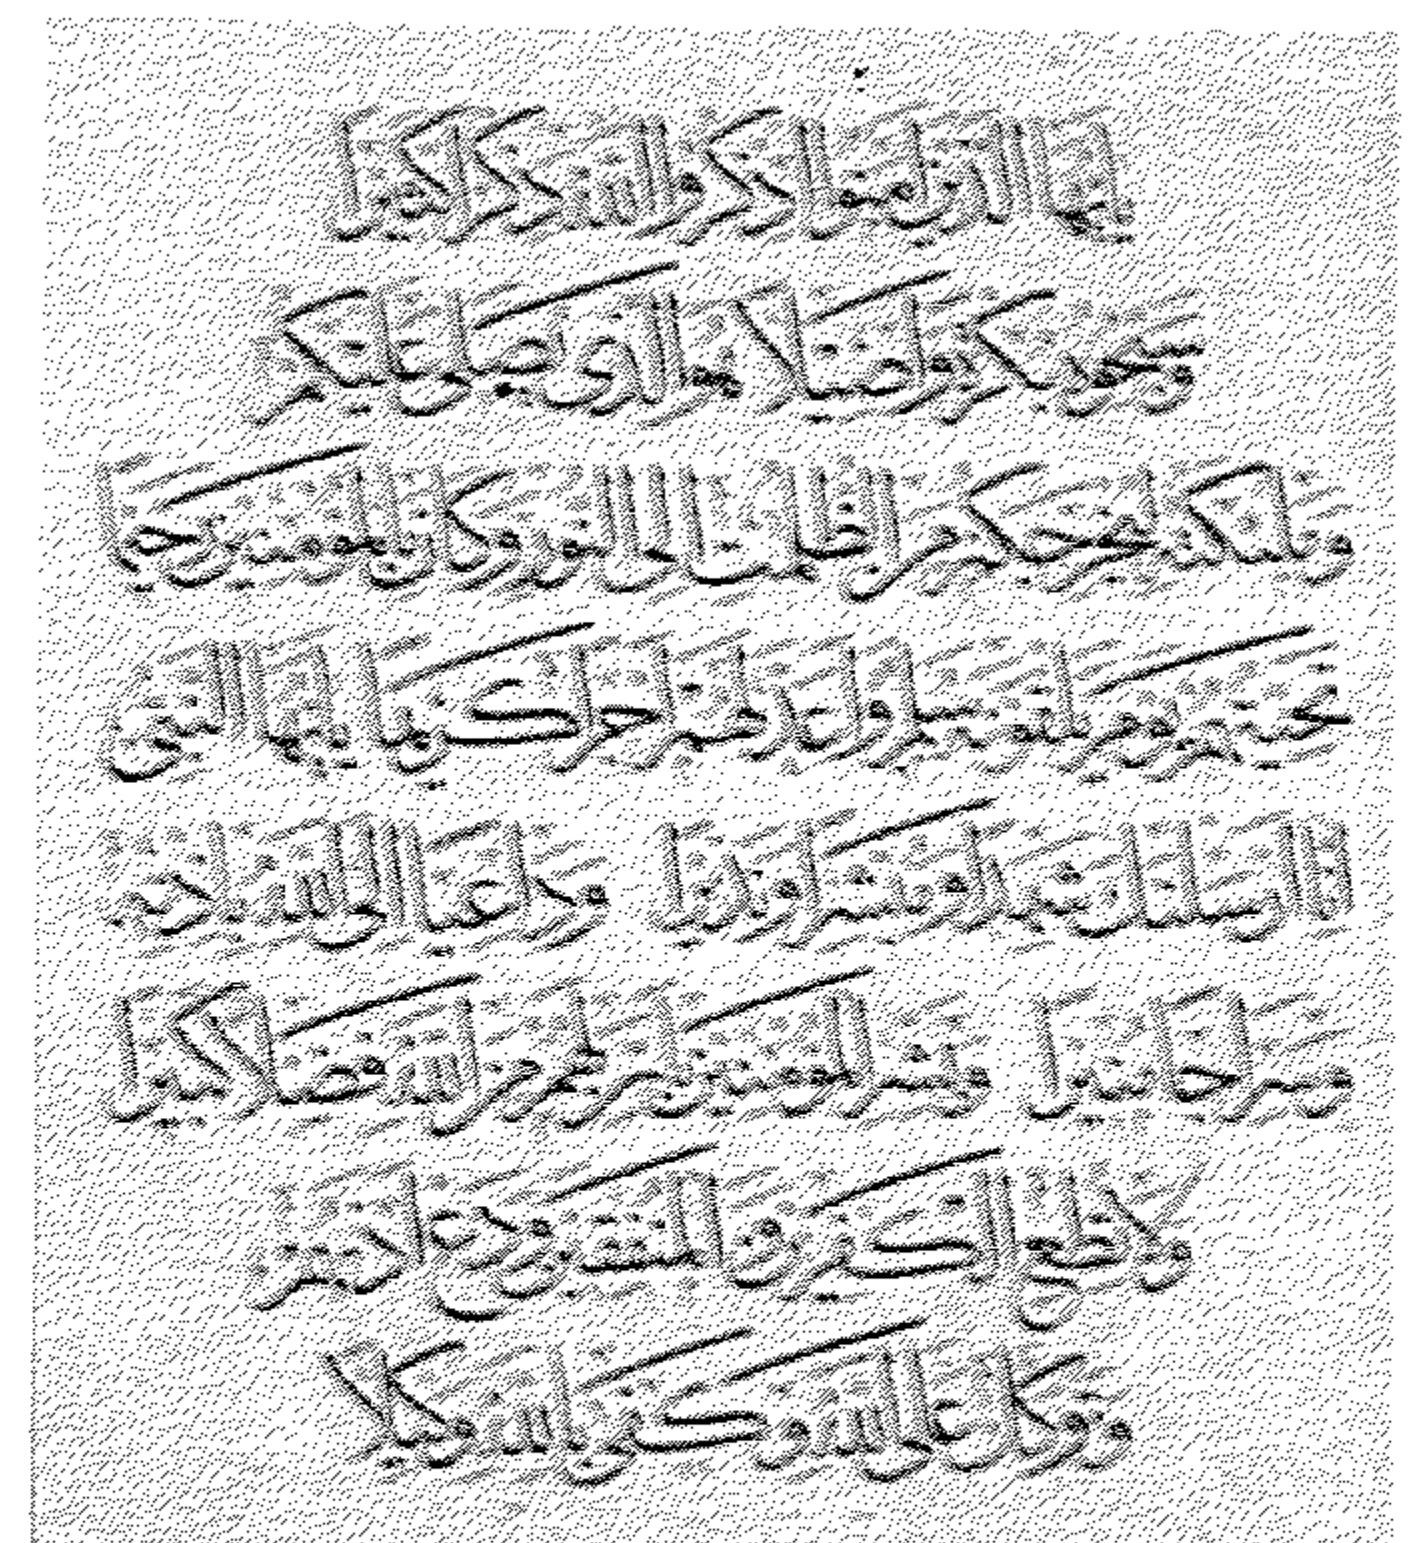 يأيها الذين امنوا اذكروا الله ذكرا كثيرا
وسبحوه بكرة واصيلا هو الذى يصلى عليكم
وملئكته ليخرجكم من الظلمت الى النور وكان بالمؤمنين رحيما
تحيتهم يوم يلقونه سلم واعد لهم اجرا كريما يأيها النبى
انا ارسلنك شهدا ومبشرا ونذيرا وداعيا الى الله باذنه
وسراجا منيرا وبشر المؤمنين بان لهم من الله فضلا كبيرا
ولا تطع الكفرين والمنفقين ودع اذىهم
وتوكل على الله وكفى بالله وكيلا